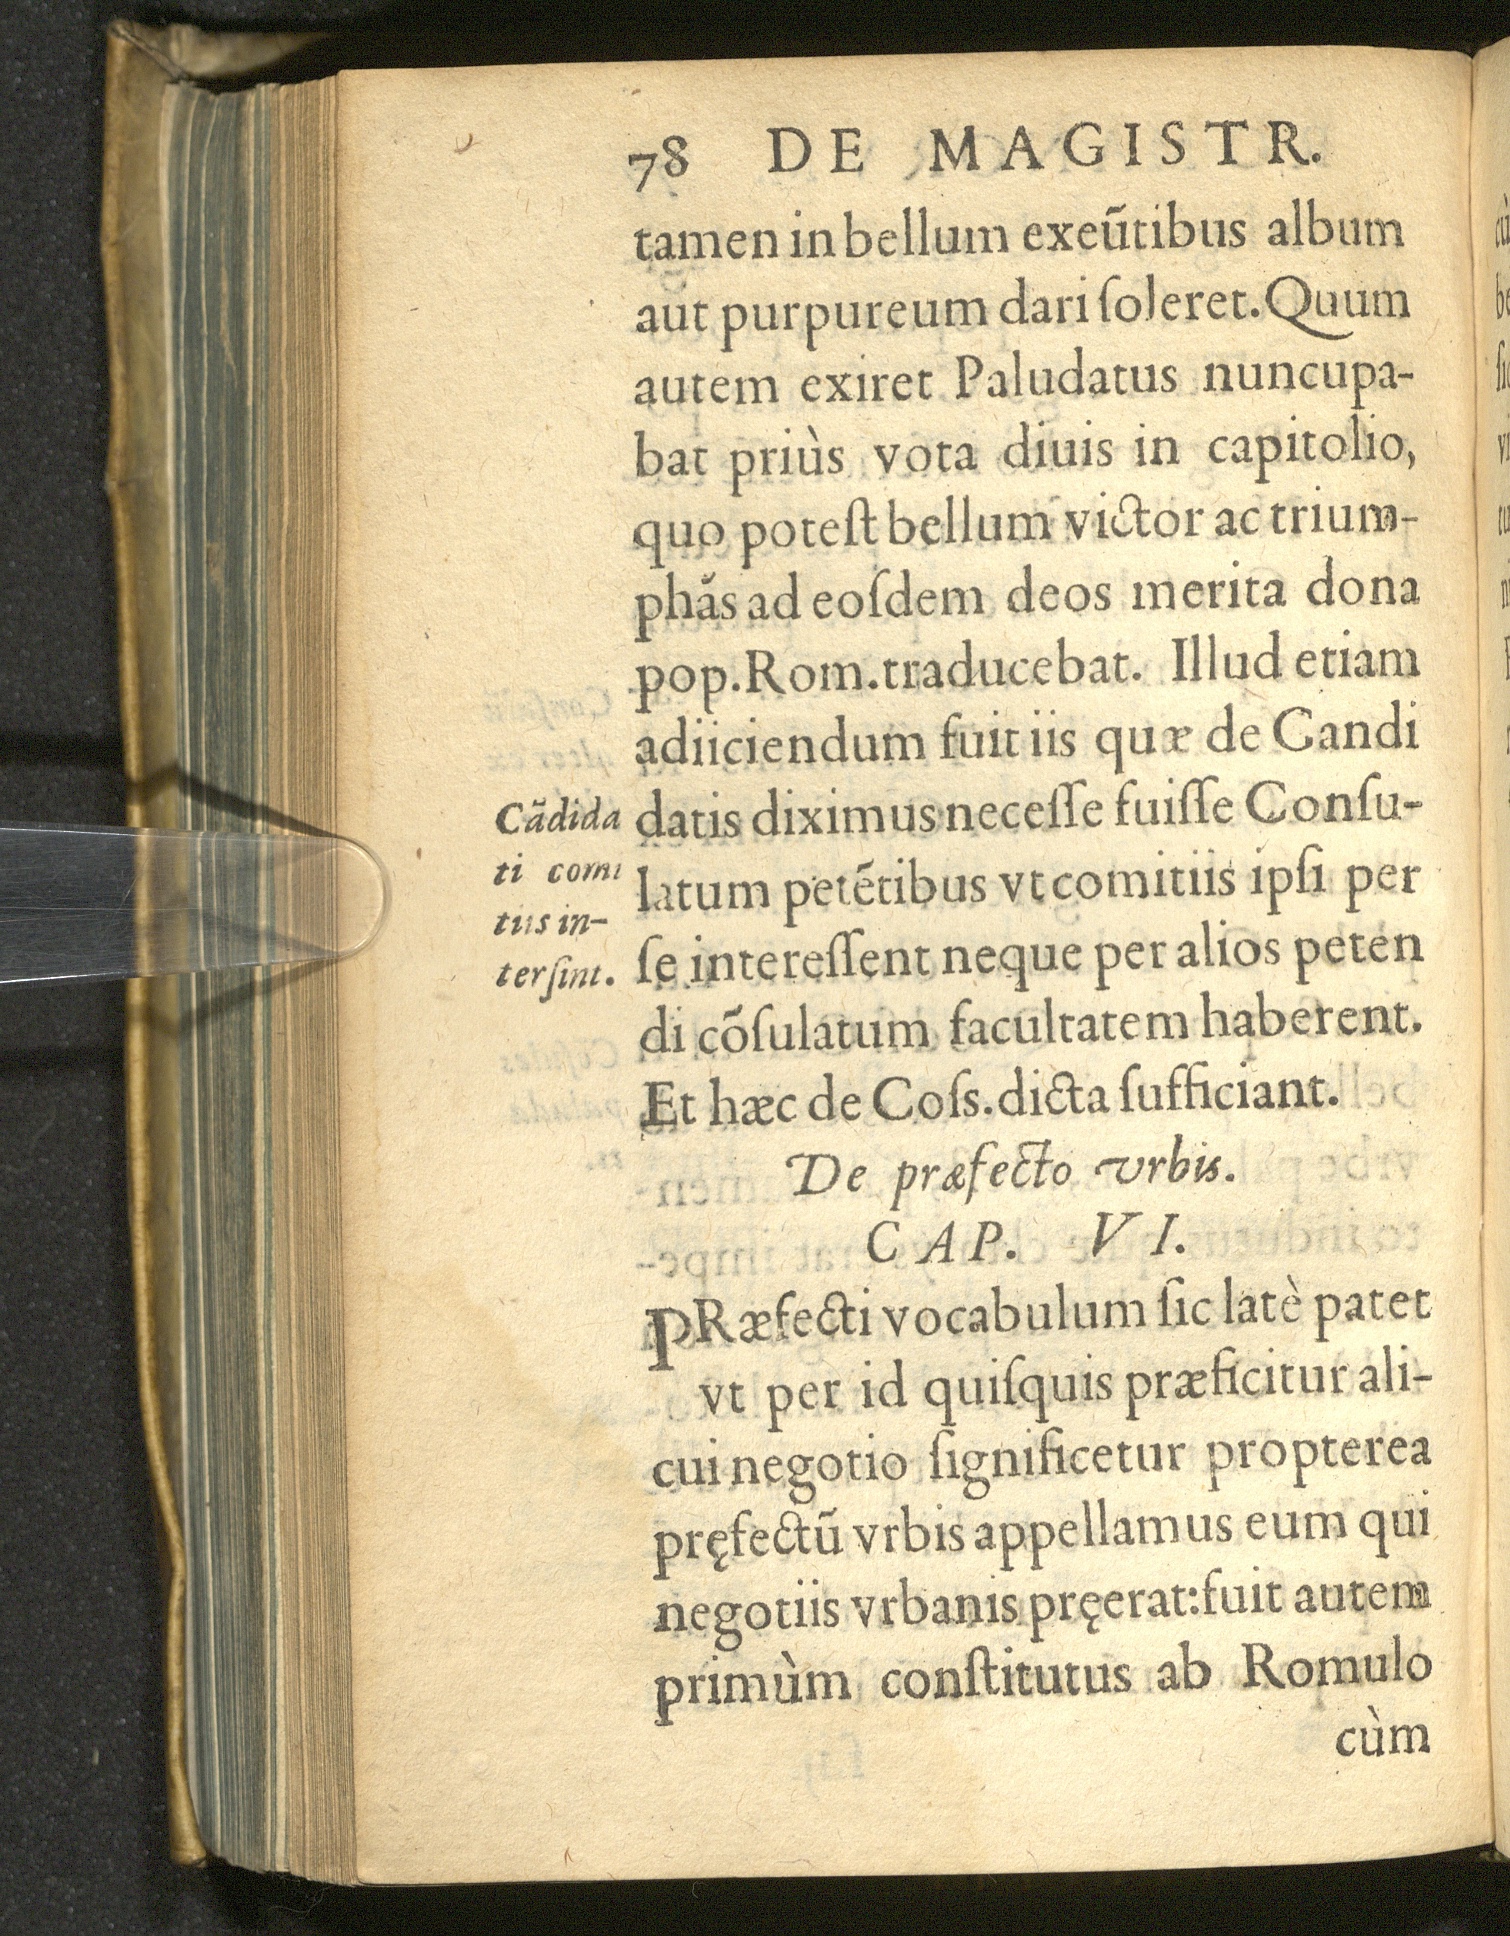 78 DE MAGISTR.
tamen in bellum exeũtibus album
aut purpureum dari ſoleret. Quum
autem exiret Paludatus nuncupa-
bat priùs vota diuis in capitolio,
quo poteſt bellum victor ac trium-
phãs ad eoſdem deos merita dona
pop. Rom. traducebat. Illud etiam
adiiciendum fuit iis quæ de Candi
datis diximus neceſſe fuiſſe Conſu-
latum petẽtibus vt comitiis ipſi per
ſe intereſſent neque per alios peten
di cõſulatum facultatem haberent.
Et hæc de Coſs. dicta ſufficiant.
Cãdida
ti comi
tiis in-
terſint.
De præfecto vrbis.
CAP. VI.
PRæfecti vocabulum ſic latè patet
vt per id quiſquis præficitur ali-
cui negotio ſignificetur propterea
pręfectũ vrbis appellamus eum qui
negotiis vrbanis pręerat: fuit autem
primùm conſtitutus ab Romulo
cùm